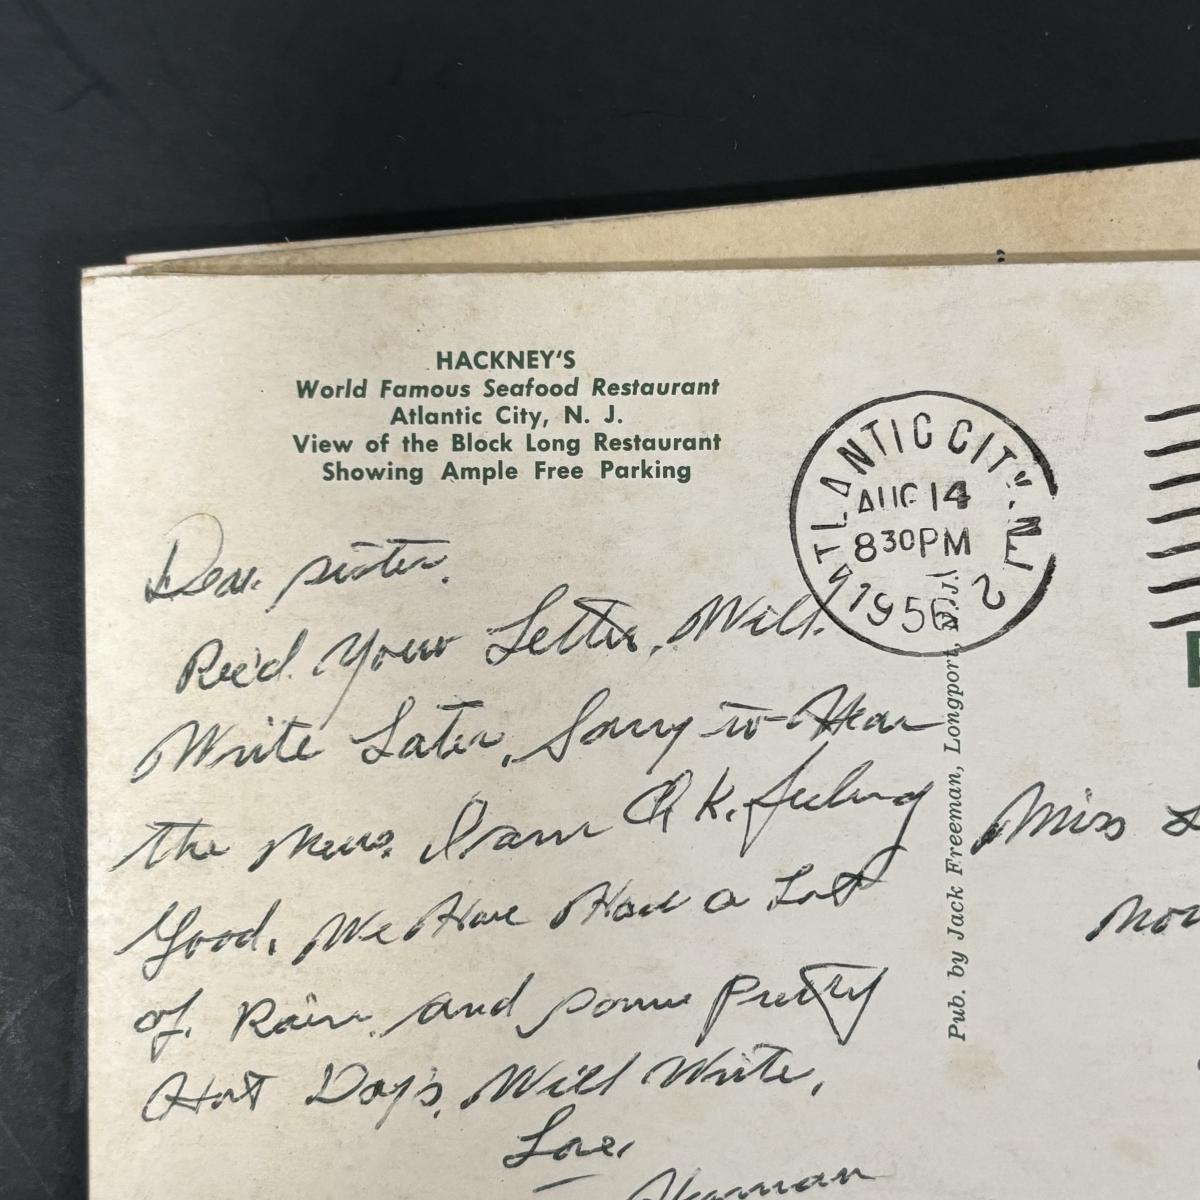 HACKNEY'S
World Famous Seafood Restaurant
Atlantic City, N. J.
View of the Block Long Restaurant
Showing Ample Free Parking
ATLANTIC CITY, N.J. 2
AUG 14
8 30 PM
1956
Dear sister.
Rec'd. Your Letter, Will.
Write Later, Sorry to Hear
the News. I am O.K. feeling
Good. We Have Had a Lot
of. Rain. and some Pretty
Hot Day's, Will Write,
Love,
Herman
Pub. by Jack Freeman, Longport, N. J.
Miss